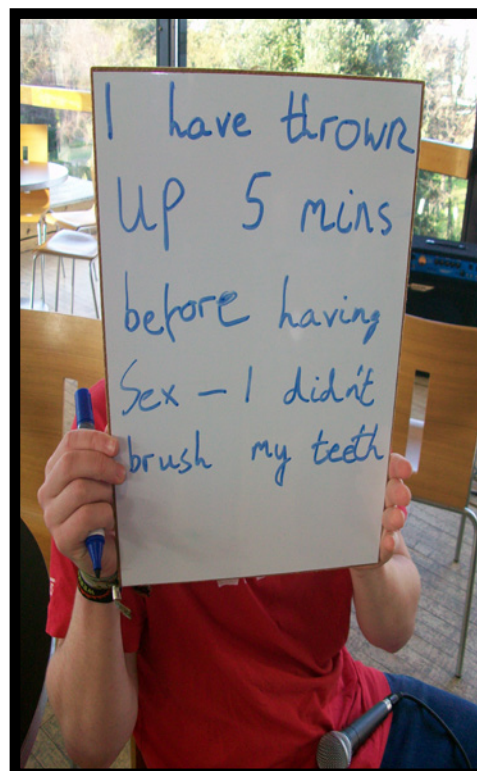 I have thrown
UP 5 mins
before having
Sex – I didn't
brush my teeth